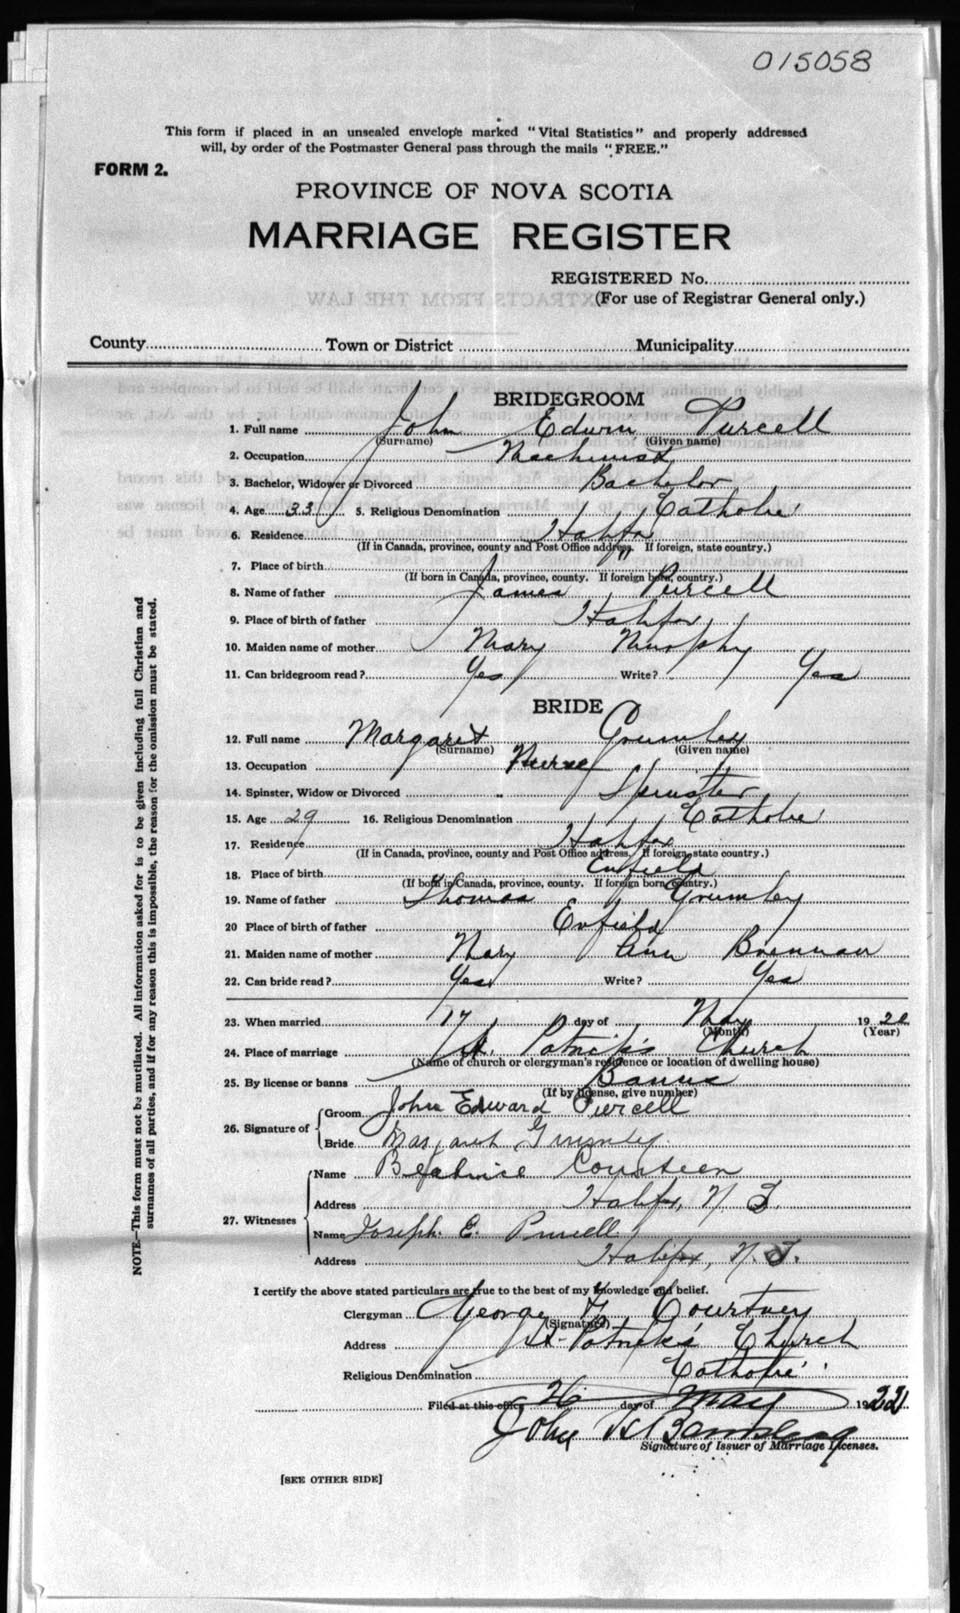 015058
This form if placed in an unsealed envelope marked "Vital Statistics" and properly addressed
will, by order of the Postmaster General pass through the mails "FREE."
FORM 2.
PROVINCE OF NOVA SCOTIA
MARRIAGE REGISTER
REGISTERED No.
(For use of Registrar General only.)
County Town or District Municipality
BRIDEGROOM
1. Full name John Edwin Purcell
(Surname) (Given name)
2. Occupation Machinist
3. Bachelor, Widower or Divorced Bachelor
4. Age 33 5. Religious Denomination Catholic
6. Residence Halifax
(If in Canada, province, county and Post Office address. If foreign, state country.)
7. Place of birth "
(If born in Canada, province, county. If foreign born, country.)
8. Name of father James Purcell
9. Place of birth of father Halifax
10. Maiden name of mother Mary Murphy
11. Can bridegroom read? Yes Write? Yes
BRIDE
12. Full name Margaret Grumley
(Surname) (Given name)
13. Occupation Nurse
14. Spinster, Widow or Divorced Spinster
15. Age 29 16. Religious Denomination Catholic
17. Residence Halifax
(If in Canada, province, county and Post Office address. If foreign, state country.)
18. Place of birth Enfield
(If born in Canada, province, county. If foreign born, country.)
19. Name of father Thomas Grumley
20 Place of birth of father Enfield
21. Maiden name of mother Mary Ann Brennan
22. Can bride read? Yes Write? Yes
23. When married 17 day of May 19
(Month) (Year)
24. Place of marriage St. Patrick's Church
(Name of church or clergyman's residence or location of dwelling house)
25. By license or banns Banns
(If by license, give number)
26. Signature of Groom John Edward Purcell
Bride Margaret Grumley
27. Witnesses Name Beatrice
Address Halifax, N. S.
Name Joseph. E. Purcell
Address Halifax, N. S.
I certify the above stated particulars are true to the best of my knowledge and belief.
Clergyman George F Courtney
(Signature)
Address St. Patrick's Church
Religious Denomination Catholic
Filed at this office 26 day of May 1922
John
Signature of Issuer of Marriage Licenses.
[SEE OTHER SIDE]
NOTE.—This form must not be mutilated. All information asked for is to be given including full Christian and
surnames of all parties, and if for any reason this is impossible, the reason for the omission must be stated.